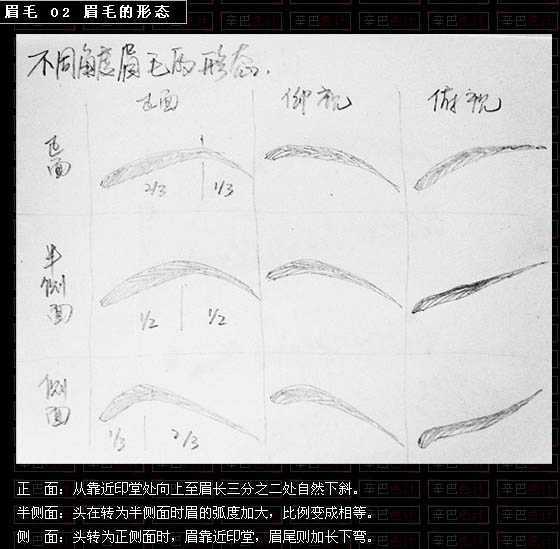 眉毛 02 眉毛的形态
不同角度眉毛的形态.
正面 仰视 俯视
正面
2/3 1/3
半侧面
1/2 1/2
侧面
1/3 2/3
正　面：从靠近印堂处向上至眉长三分之二处自然下斜。
半侧面：头在转为半侧面时眉的弧度加大，比例变成相等。
侧　面：头转为正侧面时，眉靠近印堂，眉尾则加长下弯。